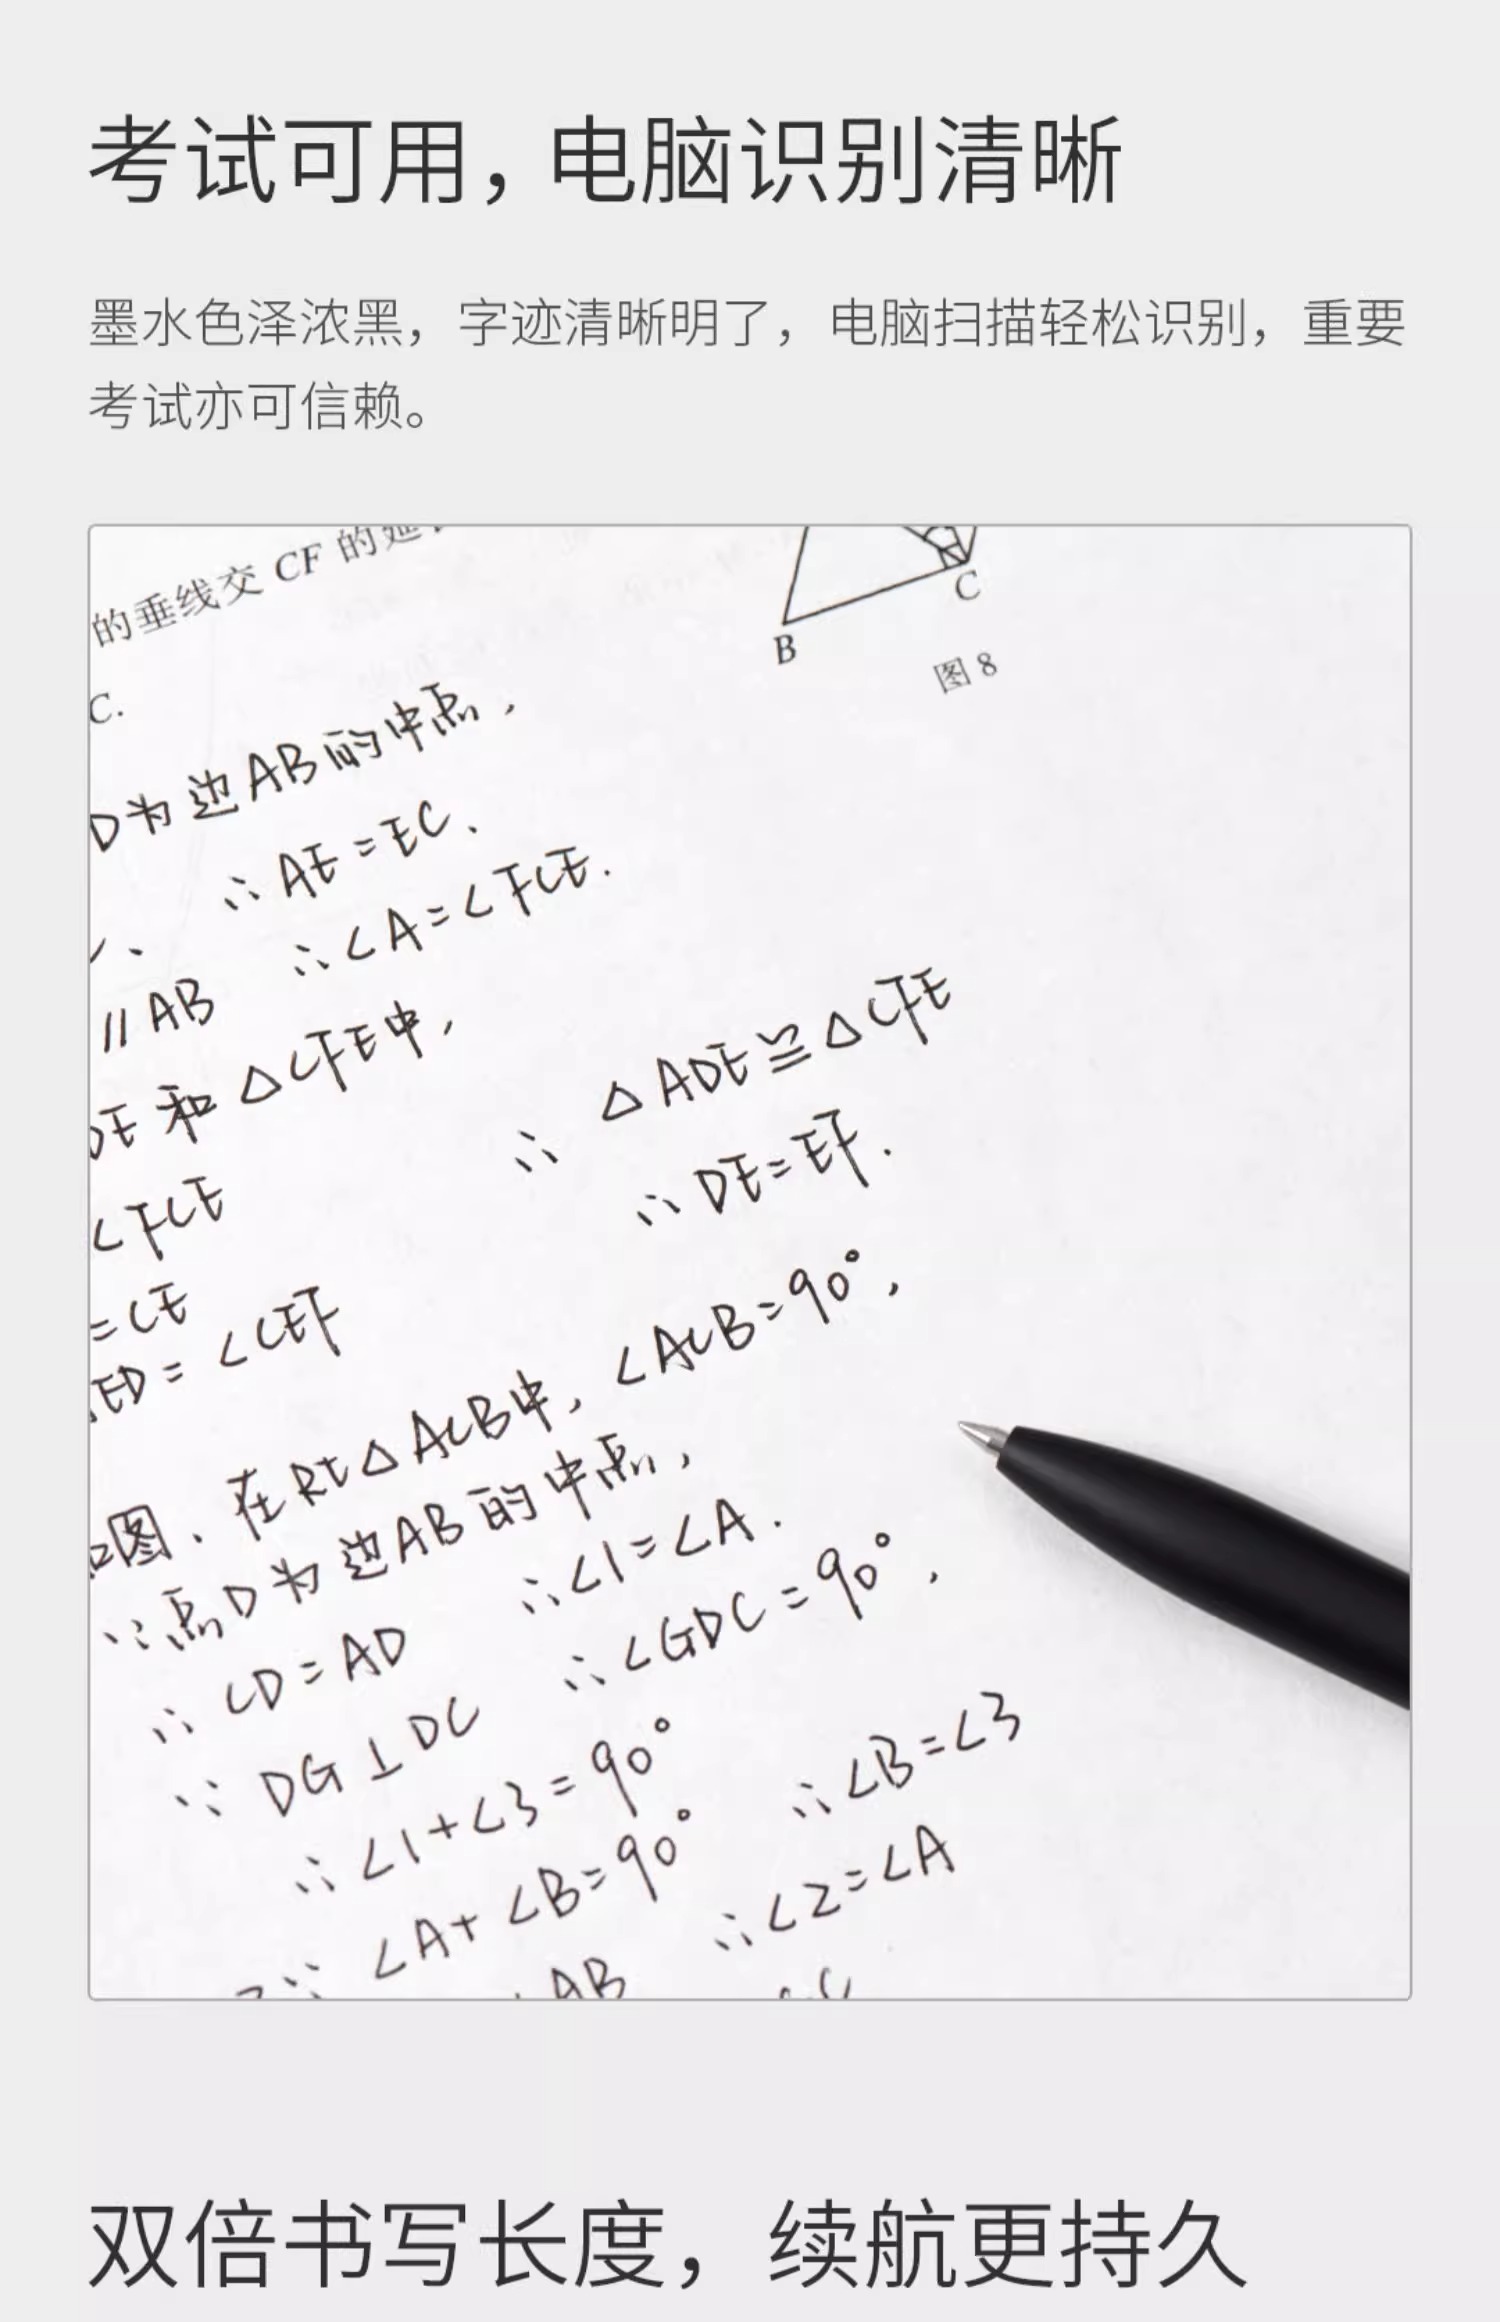 考试可用，电脑识别清晰
墨水色泽浓黑，字迹清晰明了，电脑扫描轻松识别，重要
考试亦可信赖。
的垂线交 CF 的延
C
B
图 8
C.
D为边AB的中点，
∴AE=EC.
∥AB ∴∠A=∠FCE.
DE和△CFE中，
∴ △ADE≌△CFE
∠FCE
∴DE=EF.
=CE
ED=∠CEF
如图、在Rt△ACB中，∠ACB=90°，
∵点D为边AB的中点，
∴CD=AD ∴∠1=∠A.
∵DG⊥DC ∴∠GDC=90°，
∴∠1+∠3=90°
∵∠A+∠B=90° ∴∠B=∠3
AB ∴∠2=∠A
双倍书写长度，续航更持久